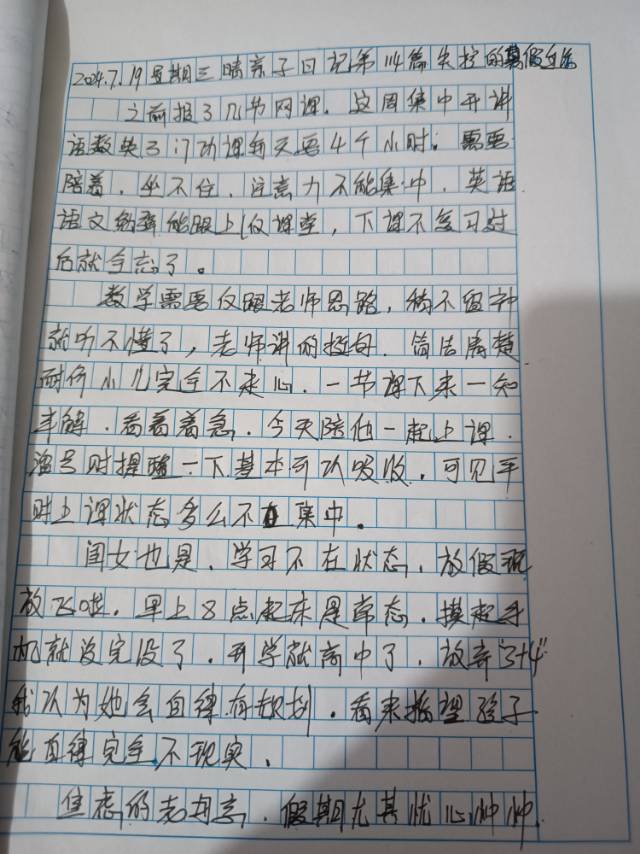 2024.7.19星期三晴亲子日记第114篇失控的暑假生活
之前报了几节网课。这周集中开讲
语数英3门功课每天要4个小时。需要
陪着,坐不住,注意力不能集中,英语
语文勉强能跟上仅课堂,下课不复习过
后就全忘了。
数学需要仅跟老师思路,稍不留神
就听不懂了,老师讲的挺好,简洁清楚
耐何小儿完全不走心,一节课下来一知
半解,看着着急,今天陪他一起上课,
溜号时提醒一下基本可以吸收,可见平
时上课状态多么不集中。
闺女也是,学习不在状态,放假就
放飞啦,早上8点起床是常态,摸起手
机就没完没了,开学就高中了,放弃"3+4"
我以为她会自律有规划,看来指望孩子
能自律完全不现实,
焦虑的老母亲,假期尤其忧心忡忡,